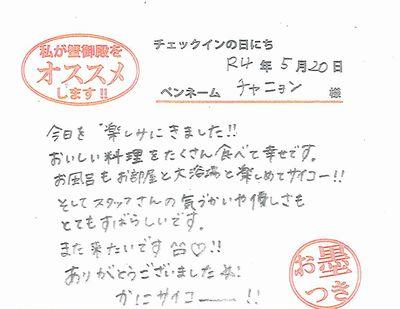 私が蟹御殿を
オススメ
します!!
チェックインの日にち
R4年5月20日
ペンネーム チャニョン 様
今日を楽しみにきました!!
おいしい料理をたくさん食べて幸せです。
お風呂もお部屋と大浴場と楽しめてサイコー!!
そしてスタッフさんの気づかいや優しさも
とてもすばらしいです。
また来たいです♡!!
ありがとうございました
かにサイコー——!!
お墨
つき